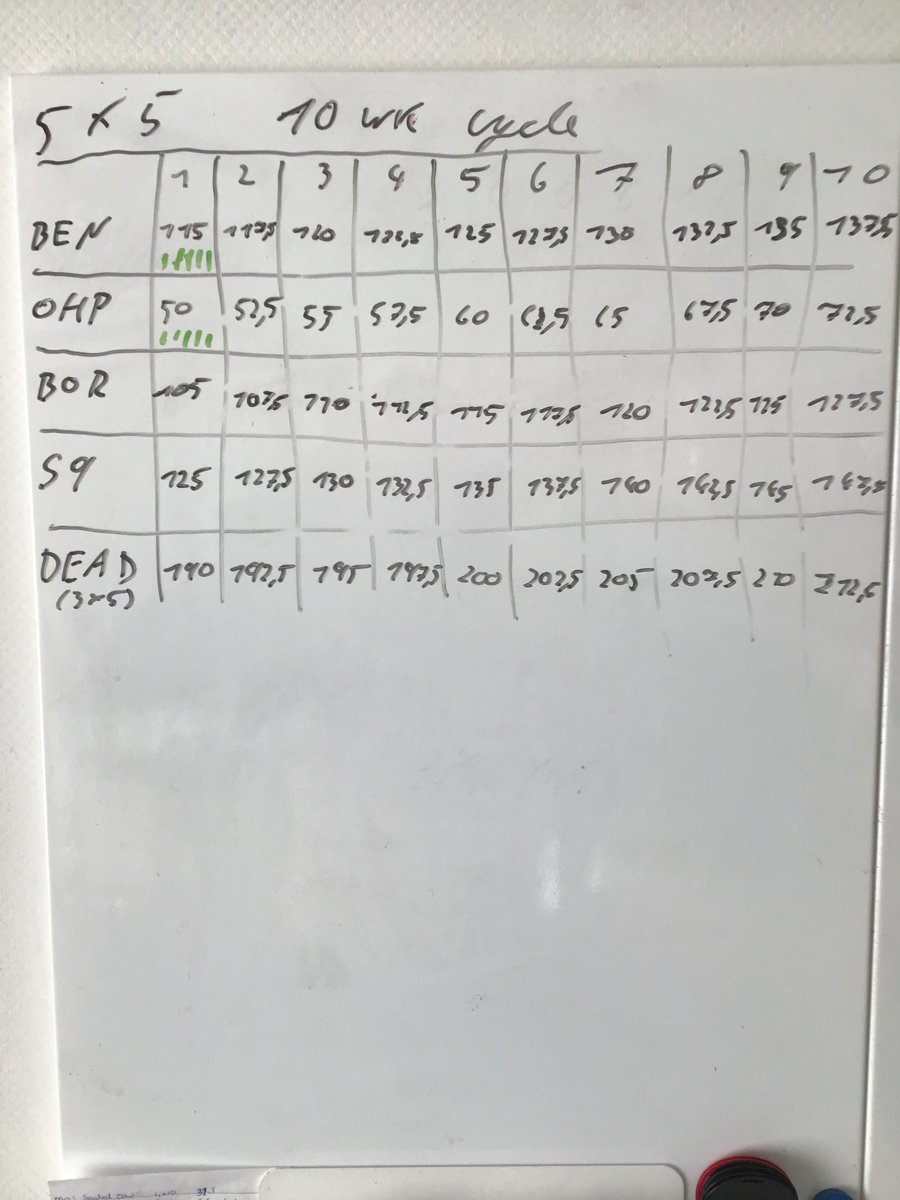 5 x 5 10 wk cycle
1 2 3 4 5 6 7 8 9 10
BEN 115 117,5 120 122,5 125 127,5 130 132,5 135 137,5
OHP 50 52,5 55 57,5 60 62,5 65 67,5 70 72,5
BOR 105 107,5 110 112,5 115 117,5 120 122,5 125 127,5
SQ 125 127,5 130 132,5 135 137,5 140 142,5 145 147,5
DEAD 190 192,5 195 197,5 200 202,5 205 207,5 210 212,5
(3x5)
Seated row 4x10 37.5